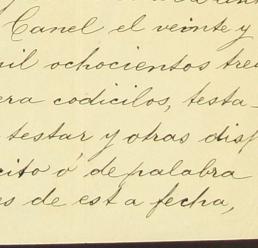 Canel el veinte y
mil ochocientos trei
era codicilos, testa-
testar y otras disp
cito o' de palabra
s de est a fecha,